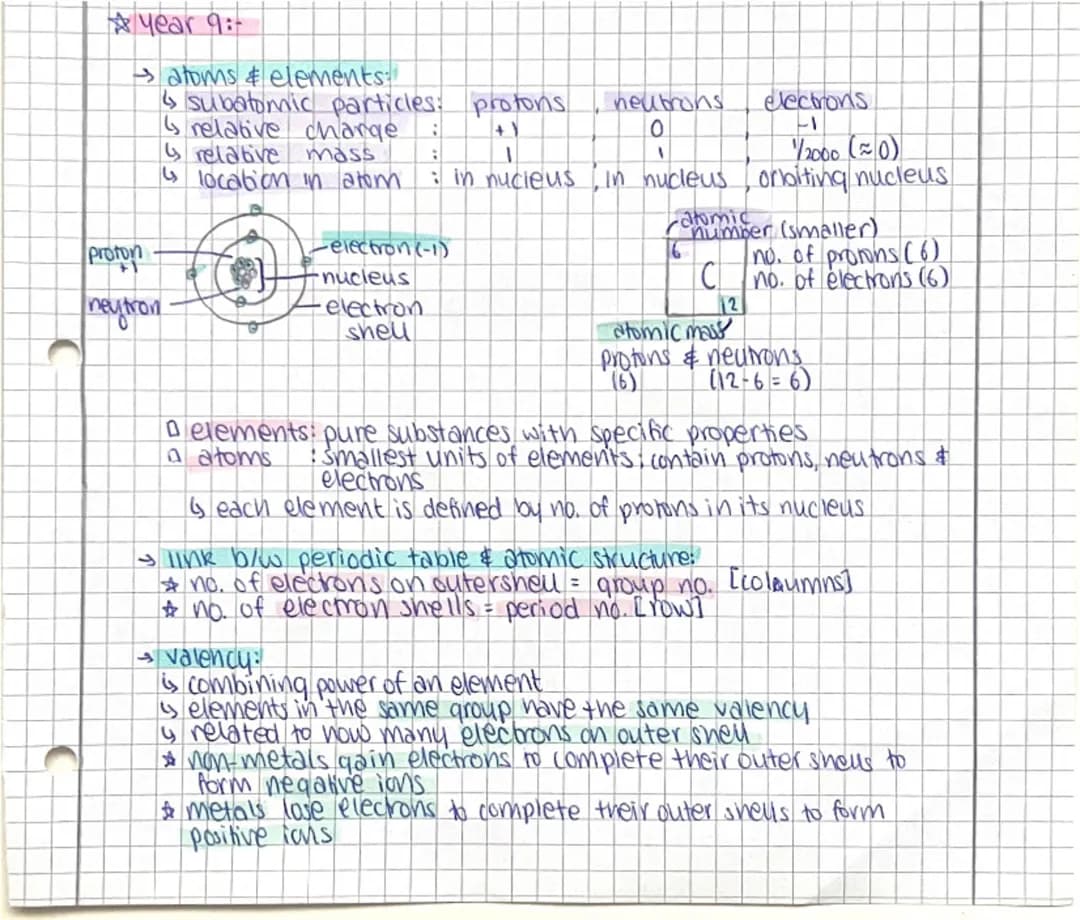 ☆ Year 9:-
→ atoms & elements:
↳ subatomic particles: protons , neutrons , electrons
↳ relative charge : +1 , 0 , -1
↳ relative mass : 1 , 1 , 1/2000 (≈0)
↳ location in atom : in nucleus , in nucleus , orbiting nucleus
proton
+1
neutron
electron (-1)
nucleus
electron
shell
atomic
number (smaller)
6
C
12
no. of protons (6)
no. of electrons (6)
atomic mass
protons & neutrons
(6) (12-6=6)
elements: pure substances with specific properties
atoms : smallest units of elements; contain protons, neutrons &
electrons
↳ each element is defined by no. of protons in its nucleus
→ link b/w periodic table & atomic structure:
☆ no. of electrons on outershell = group no. [colaumns]
☆ no. of electron shells = period no. [row]
→ valency:
↳ combining power of an element
↳ elements in the same group have the same valency
↳ related to how many electrons on outer shell
☆ non-metals gain electrons to complete their outer shells to
form negative ions
☆ metals lose electrons to complete their outer shells to form
positive ions